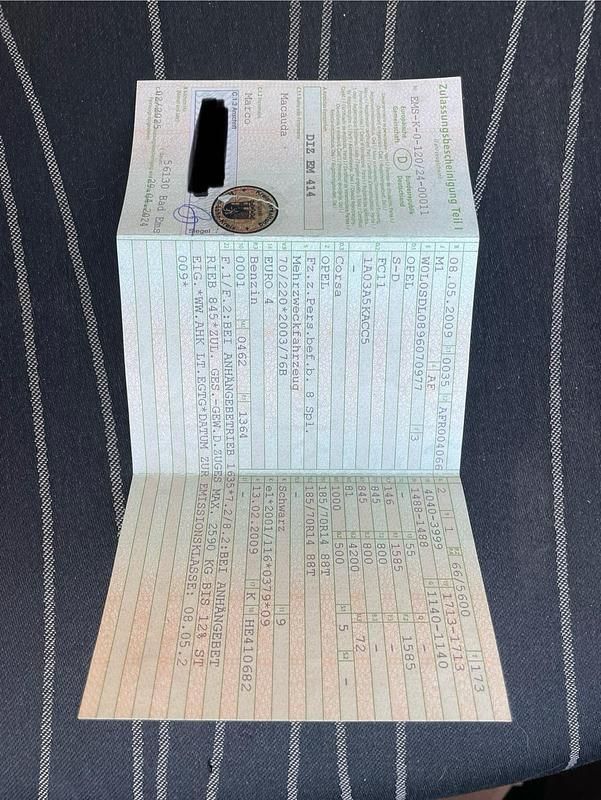 Zulassungsbescheinigung Teil I
EMS-K-0-120/24-00011
Europäische Gemeinschaft
D
Bundesrepublik Deutschland
DIZ EM 414
Macauda
Marco
C.1.3 Anschrift
56130 Bad Ems
02/2025
29.04.2024
Siegel
08.05.2009 0035 AFR004066
M1 AF
W0L0SDL0896070977 3
OPEL
S-D
FC11
1A03A5KACC5
-
Corsa
OPEL
Fz.z.Pers.bef.b. 8 Spl.
Mehrzweckfahrzeug
70/220*2003/76B
EURO 4
Benzin
0001 0462 1364
2 1 66/5600 173
4040-3999 1713-1713
1488-1488 1140-1140
- 55 -
146 1585 1585
845 800 -
845 800 -
81 4200 72
1000 500 5 -
185/70R14 88T
185/70R14 88T
-
Schwarz 9
e1*2001/116*0379*09
13.02.2009 K HE410682
F.1/F.2:BEI ANHÄNGEBETRIEB 1635*7.2/8.2:BEI ANHÄNGEBET
RIEB 845*ZUL. GES.-GEW.D.ZUGES MAX. 2590 KG BIS 12% ST
EIG.*WW.AHK LT.EGTG*DATUM ZUR EMISSIONSKLASSE: 08.05.2
009*